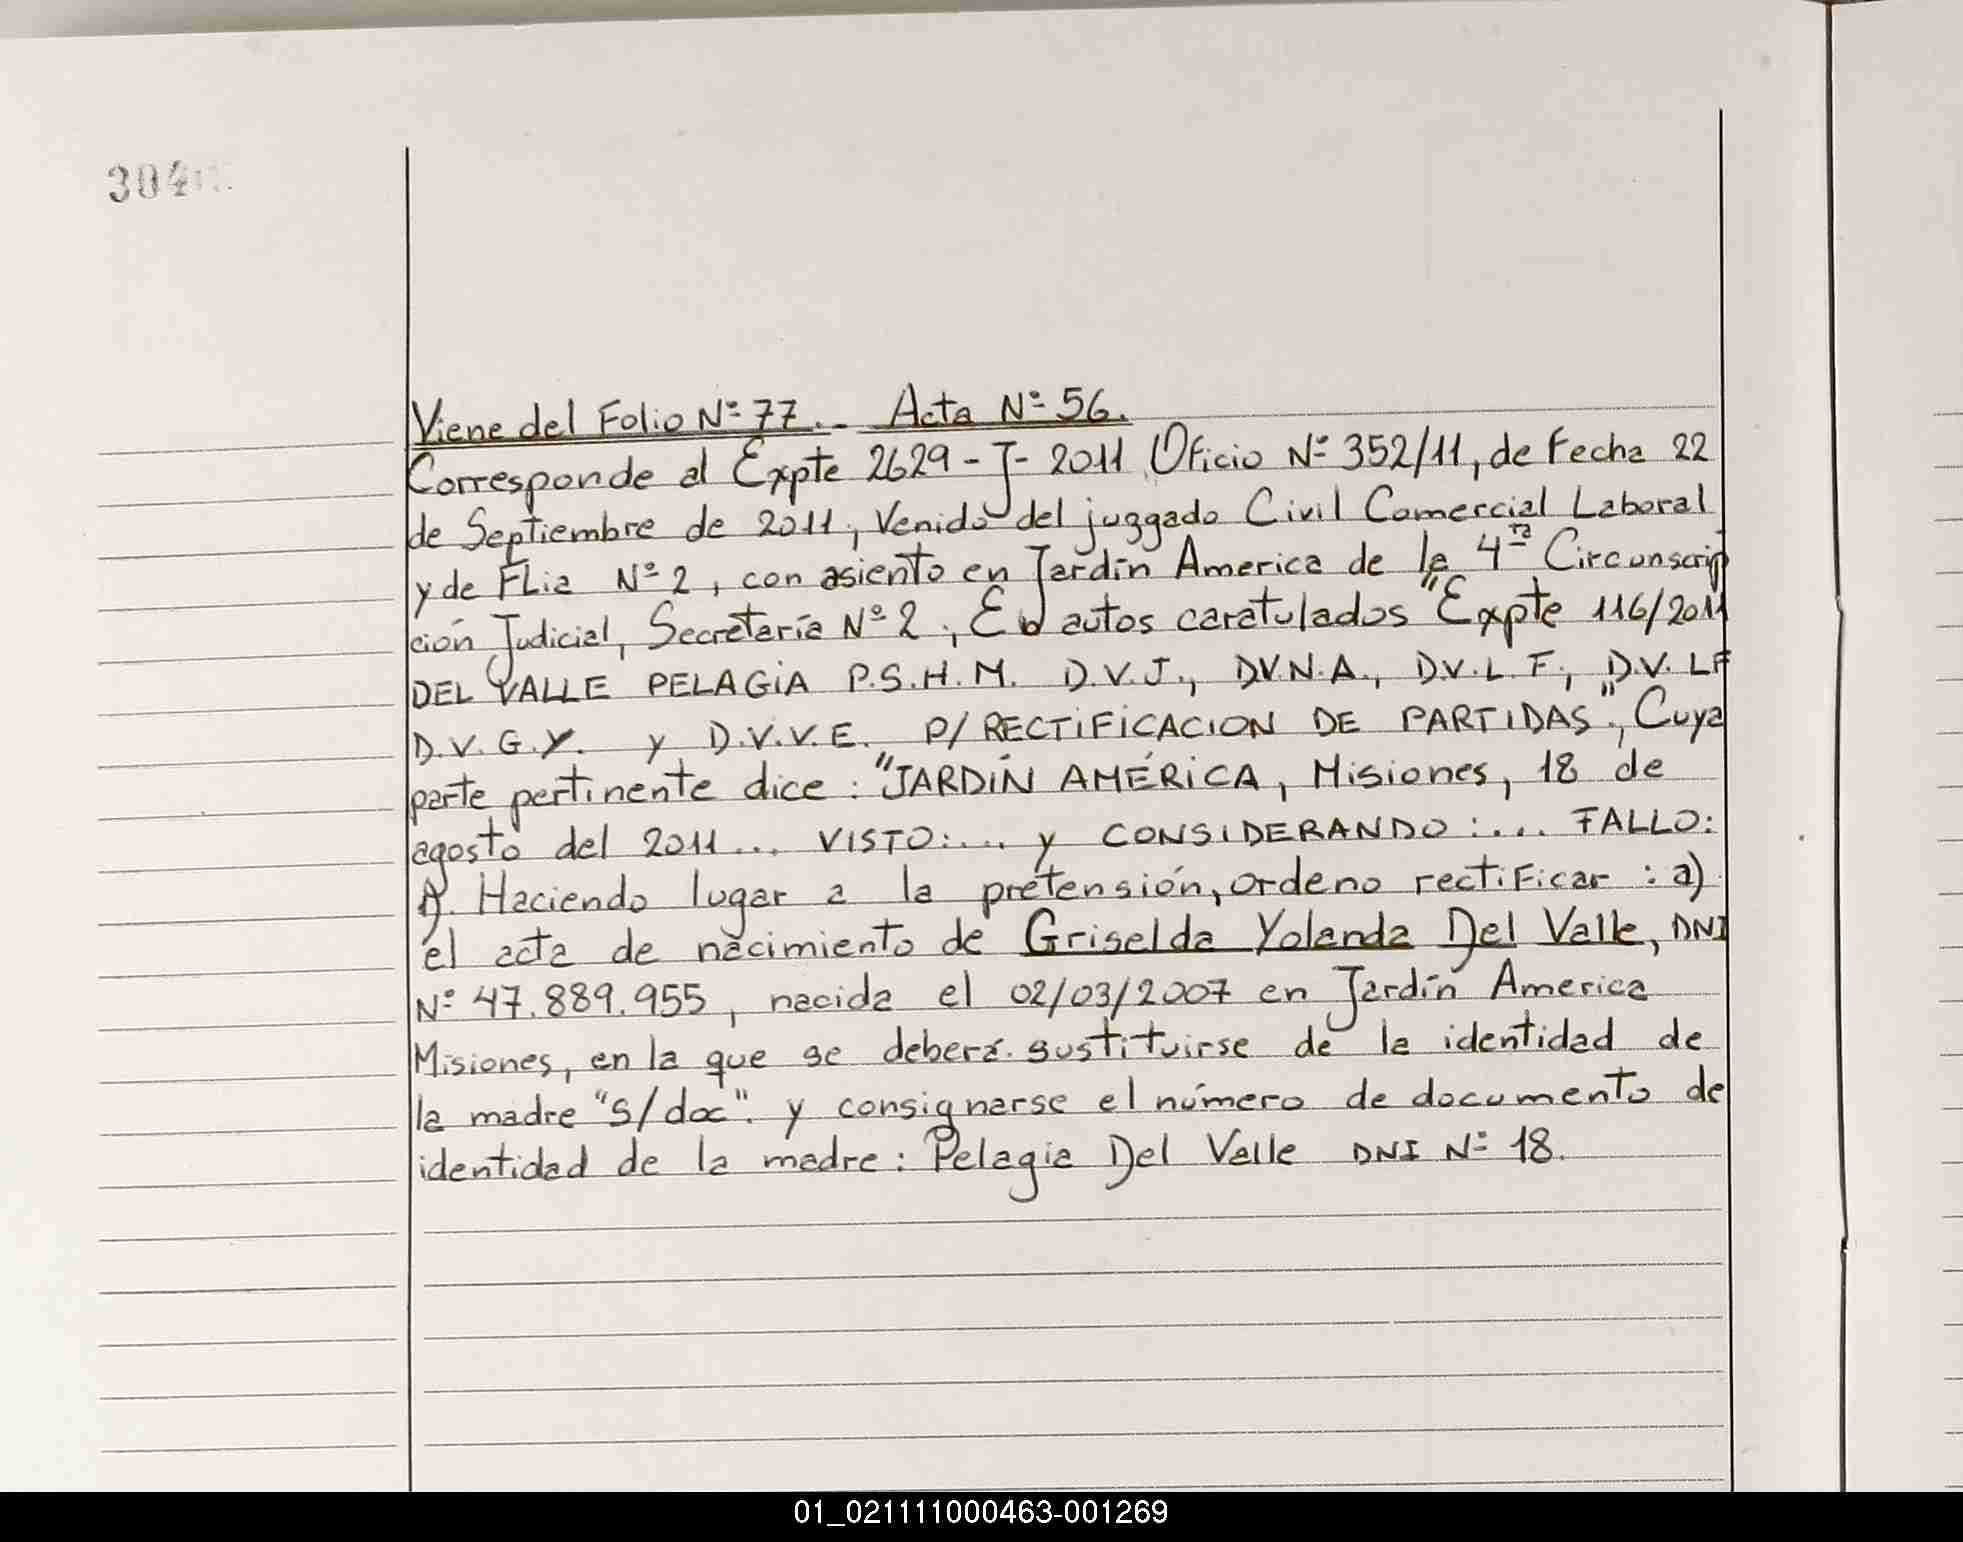 304
Viene del Folio Nº 77.- Acta Nº 56.
Corresponde al Expte 2629-J-2011 Oficio Nº 352/11, de Fecha 22
de Septiembre de 2011, Venido del juzgado Civil Comercial Laboral
y de FLia Nº 2, con asiento en Jardín America de la 4ta Circunscrip
ción Judicial, Secretaría Nº 2, En autos caratulados "Expte 116/2011
DEL VALLE PELAGIA P.S.H.M. D.V.J., D.V.N.A., D.V.L.F, D.V.LF
D.V.G.Y. y D.V.V.E. P/RECTIFICACION DE PARTIDAS", Cuya
parte pertinente dice: "JARDÍN AMÉRICA, Misiones, 18 de
agosto del 2011... VISTO:... y CONSIDERANDO:... FALLO:
Haciendo lugar a la pretensión, ordeno rectificar: a)
el acta de nacimiento de Griselda Yolanda Del Valle, DNI
Nº 47.889.955, nacida el 02/03/2007 en Jardín America
Misiones, en la que se deberá sustituirse de la identidad de
la madre "S/doc". y consignarse el número de documento de
identidad de la madre: Pelagia Del Valle DNI Nº 18.
01_021111000463-001269